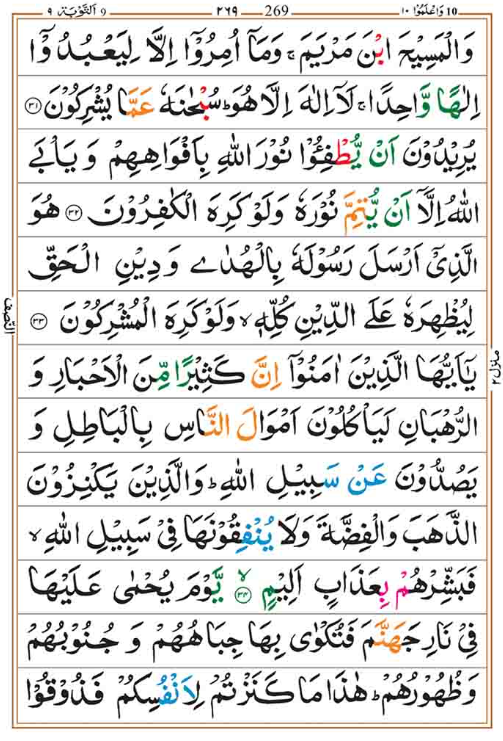 التوبة ٩ 9 ٢٦٩ 269 واعلموا ١٠ 10
وَالْمَسِيْحَ ابْنَ مَرْيَمَ ۚ وَمَاۤ اُمِرُوْۤا اِلَّا لِيَعْبُدُوْۤا
اِلٰهًا وَّاحِدًا ۚ لَاۤ اِلٰهَ اِلَّا هُوَ ؕ سُبْحٰنَهٗ عَمَّا يُشْرِكُوْنَ ﴿٣١﴾
يُرِيْدُوْنَ اَنْ يُّطْفِـُٔوْا نُوْرَ اللّٰهِ بِاَفْوَاهِهِمْ وَيَاْبَى
اللّٰهُ اِلَّاۤ اَنْ يُّتِمَّ نُوْرَهٗ وَلَوْ كَرِهَ الْكٰفِرُوْنَ ﴿٣٢﴾ هُوَ
الَّذِىْۤ اَرْسَلَ رَسُوْلَهٗ بِالْهُدٰى وَدِيْنِ الْحَقِّ
لِيُظْهِرَهٗ عَلَى الدِّيْنِ كُلِّهٖ ۙ وَلَوْ كَرِهَ الْمُشْرِكُوْنَ ﴿٣٣﴾
النصف
يٰۤاَيُّهَا الَّذِيْنَ اٰمَنُوْۤا اِنَّ كَثِيْرًا مِّنَ الْاَحْبَارِ وَ
منزل ٢
الرُّهْبَانِ لَيَاْكُلُوْنَ اَمْوَالَ النَّاسِ بِالْبَاطِلِ وَ
يَصُدُّوْنَ عَنْ سَبِيْلِ اللّٰهِ ؕ وَالَّذِيْنَ يَكْنِزُوْنَ
الذَّهَبَ وَالْفِضَّةَ وَلَا يُنْفِقُوْنَهَا فِىْ سَبِيْلِ اللّٰهِ ۙ
فَبَشِّرْهُمْ بِعَذَابٍ اَلِيْمٍ ۙ ﴿٣٤﴾ يَّوْمَ يُحْمٰى عَلَيْهَا
فِىْ نَارِ جَهَنَّمَ فَتُكْوٰى بِهَا جِبَاهُهُمْ وَ جُنُوْبُهُمْ
وَظُهُوْرُهُمْ ؕ هٰذَا مَا كَنَزْتُمْ لِاَنْفُسِكُمْ فَذُوْقُوْا